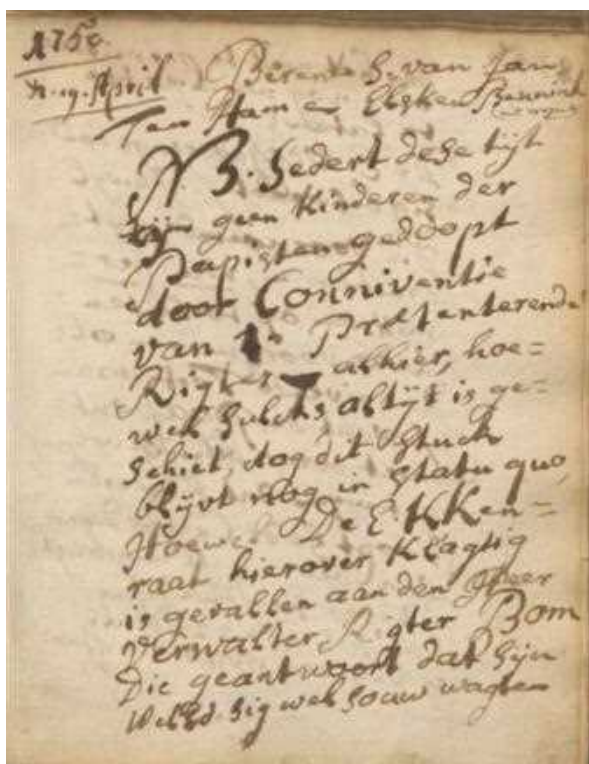 A 1758
n. 19. April Berent S. van Jan
Ten Ham en Elsken Bennink
NB. Sedert dese tijt
sijn geen Kinderen der
Papisten gedoopt
door Conniventie
van Prætenterende
Rigter alhier, hoe=
wel Sulcks altijt is ge=
schiet, dog dit Stuck
blijvt nog in Statu quo,
Hoewel De E KKen=
raat hierover Klagtig
is gevallen aan den Heer
Verwalter Rigter Bom
Die geantwoort dat Sijn
WelEd. Sig wel souw wagten